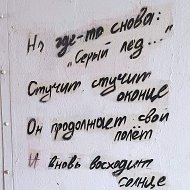 Но где-то снова:
„Серый лед..."
Стучит стучит
оконце
Он продолжает свой
полёт
И вновь восходит
солнце